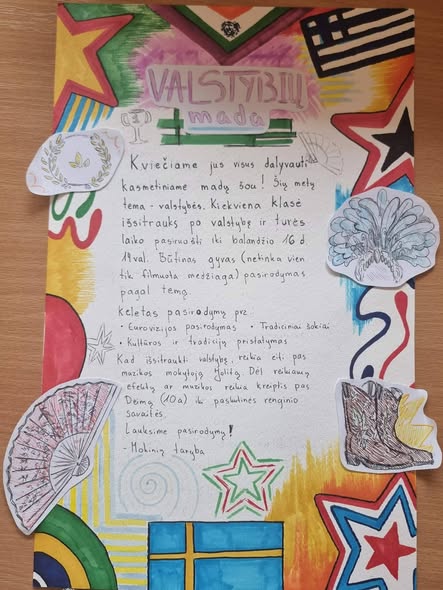 VALSTYBIŲ
mada
Kviečiame jus visus dalyvauti
kasmetiniame madų šou! Šių metų
tema - valstybės. Kiekviena klasė
išsitrauks po valstybę ir turės
laiko pasiruošti iki balandžio 16 d.
19 val. Būtinas gyvas (netinka vien
tik filmuota medžiaga) pasirodymas
pagal temą.
Keletas pasirodymų pvz:
• Eurovizijos pasirodymas • Tradiciniai šokiai
• Kultūros ir tradicijų pristatymas
Kad išsitraukti valstybę, reikia eiti pas
muzikos mokytoją Jolitą. Dėl reikiamų
efektų ar muzikos reikia kreiptis pas
Deimą (10a) iki paskutinės renginio
savaitės.
Lauksime pasirodymų!
- Mokinių taryba